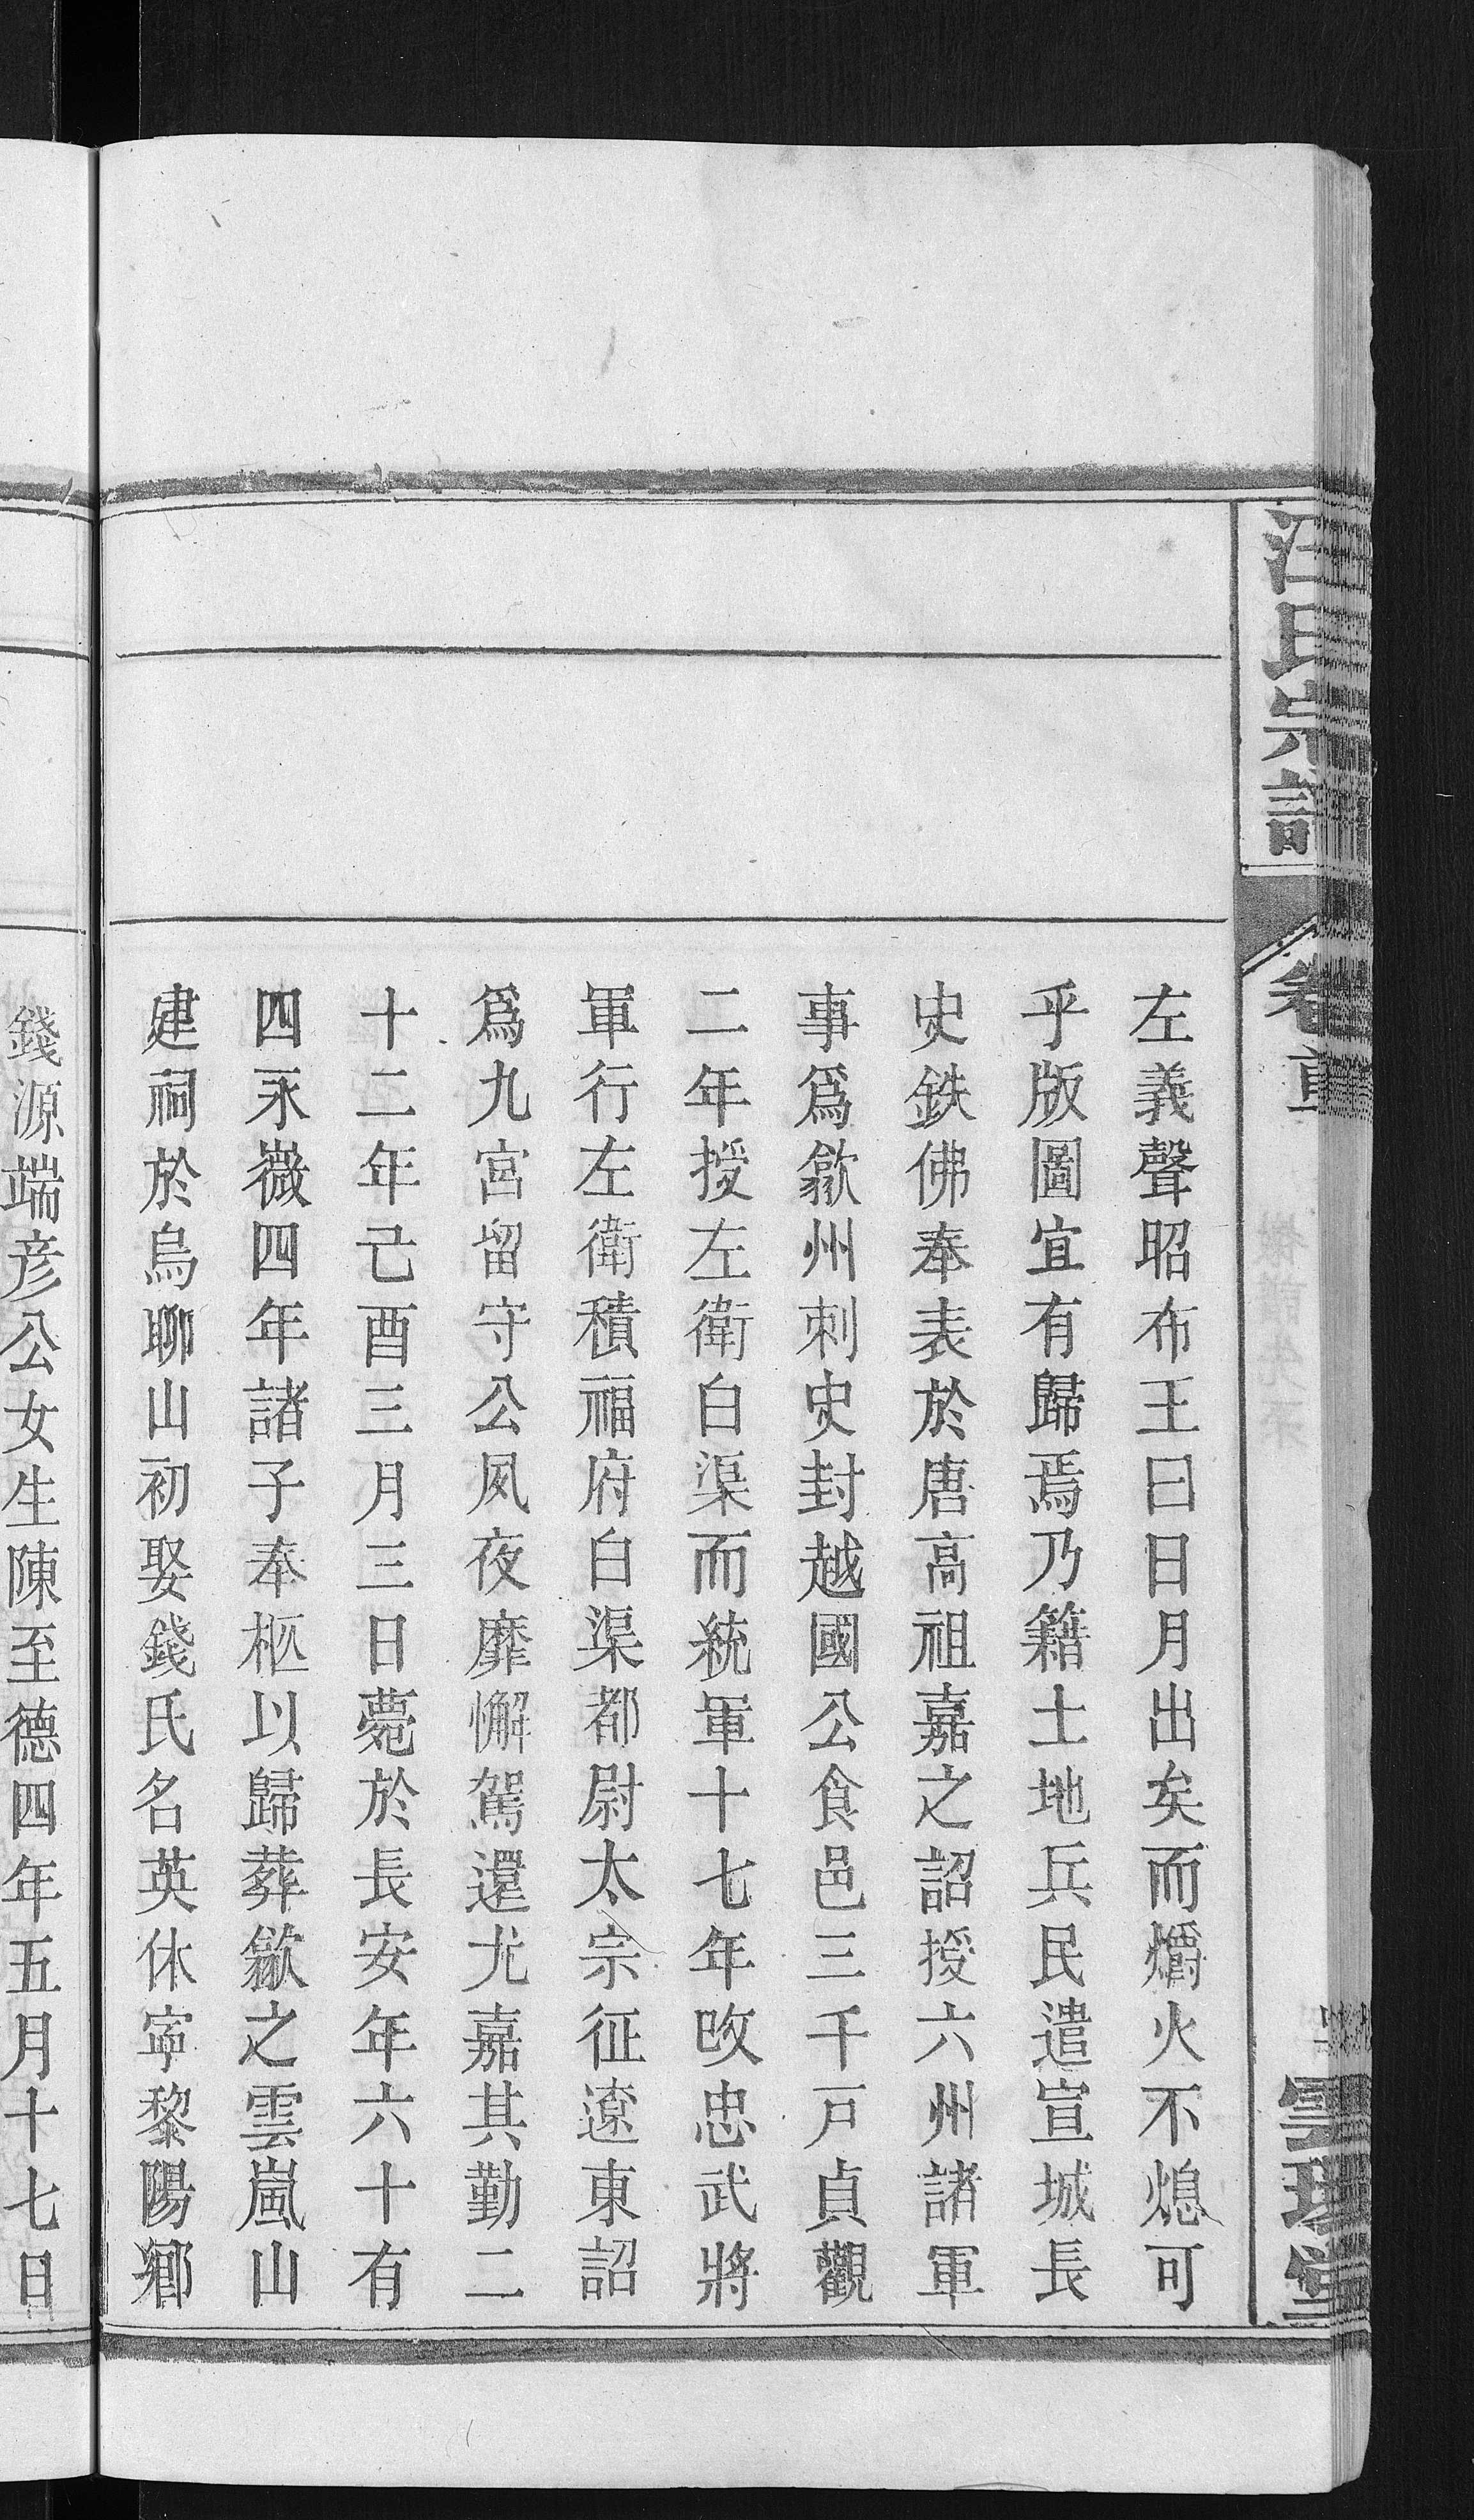 汪氏宗譜
卷首
左義聲昭布王曰日月出矣而爝火不熄可
乎版圖宜有歸焉乃籍土地兵民遣宣城長
史鉄佛奉表於唐高祖嘉之詔授六州諸軍
事爲歙州刺史封越國公食邑三千戸貞觀
二年授左衛白渠而統軍十七年改忠武將
軍行左衛積福府白渠都尉太宗征遼東詔
爲九宮留守公夙夜靡懈駕還尤嘉其勤二
十二年己酉三月三日薨於長安年六十有
四永徽四年諸子奉柩以歸葬歙之雲嵐山
建祠於烏聊山初娶錢氏名英休寧黎陽鄉
錢源端彦公女生陳至德四年五月十七日